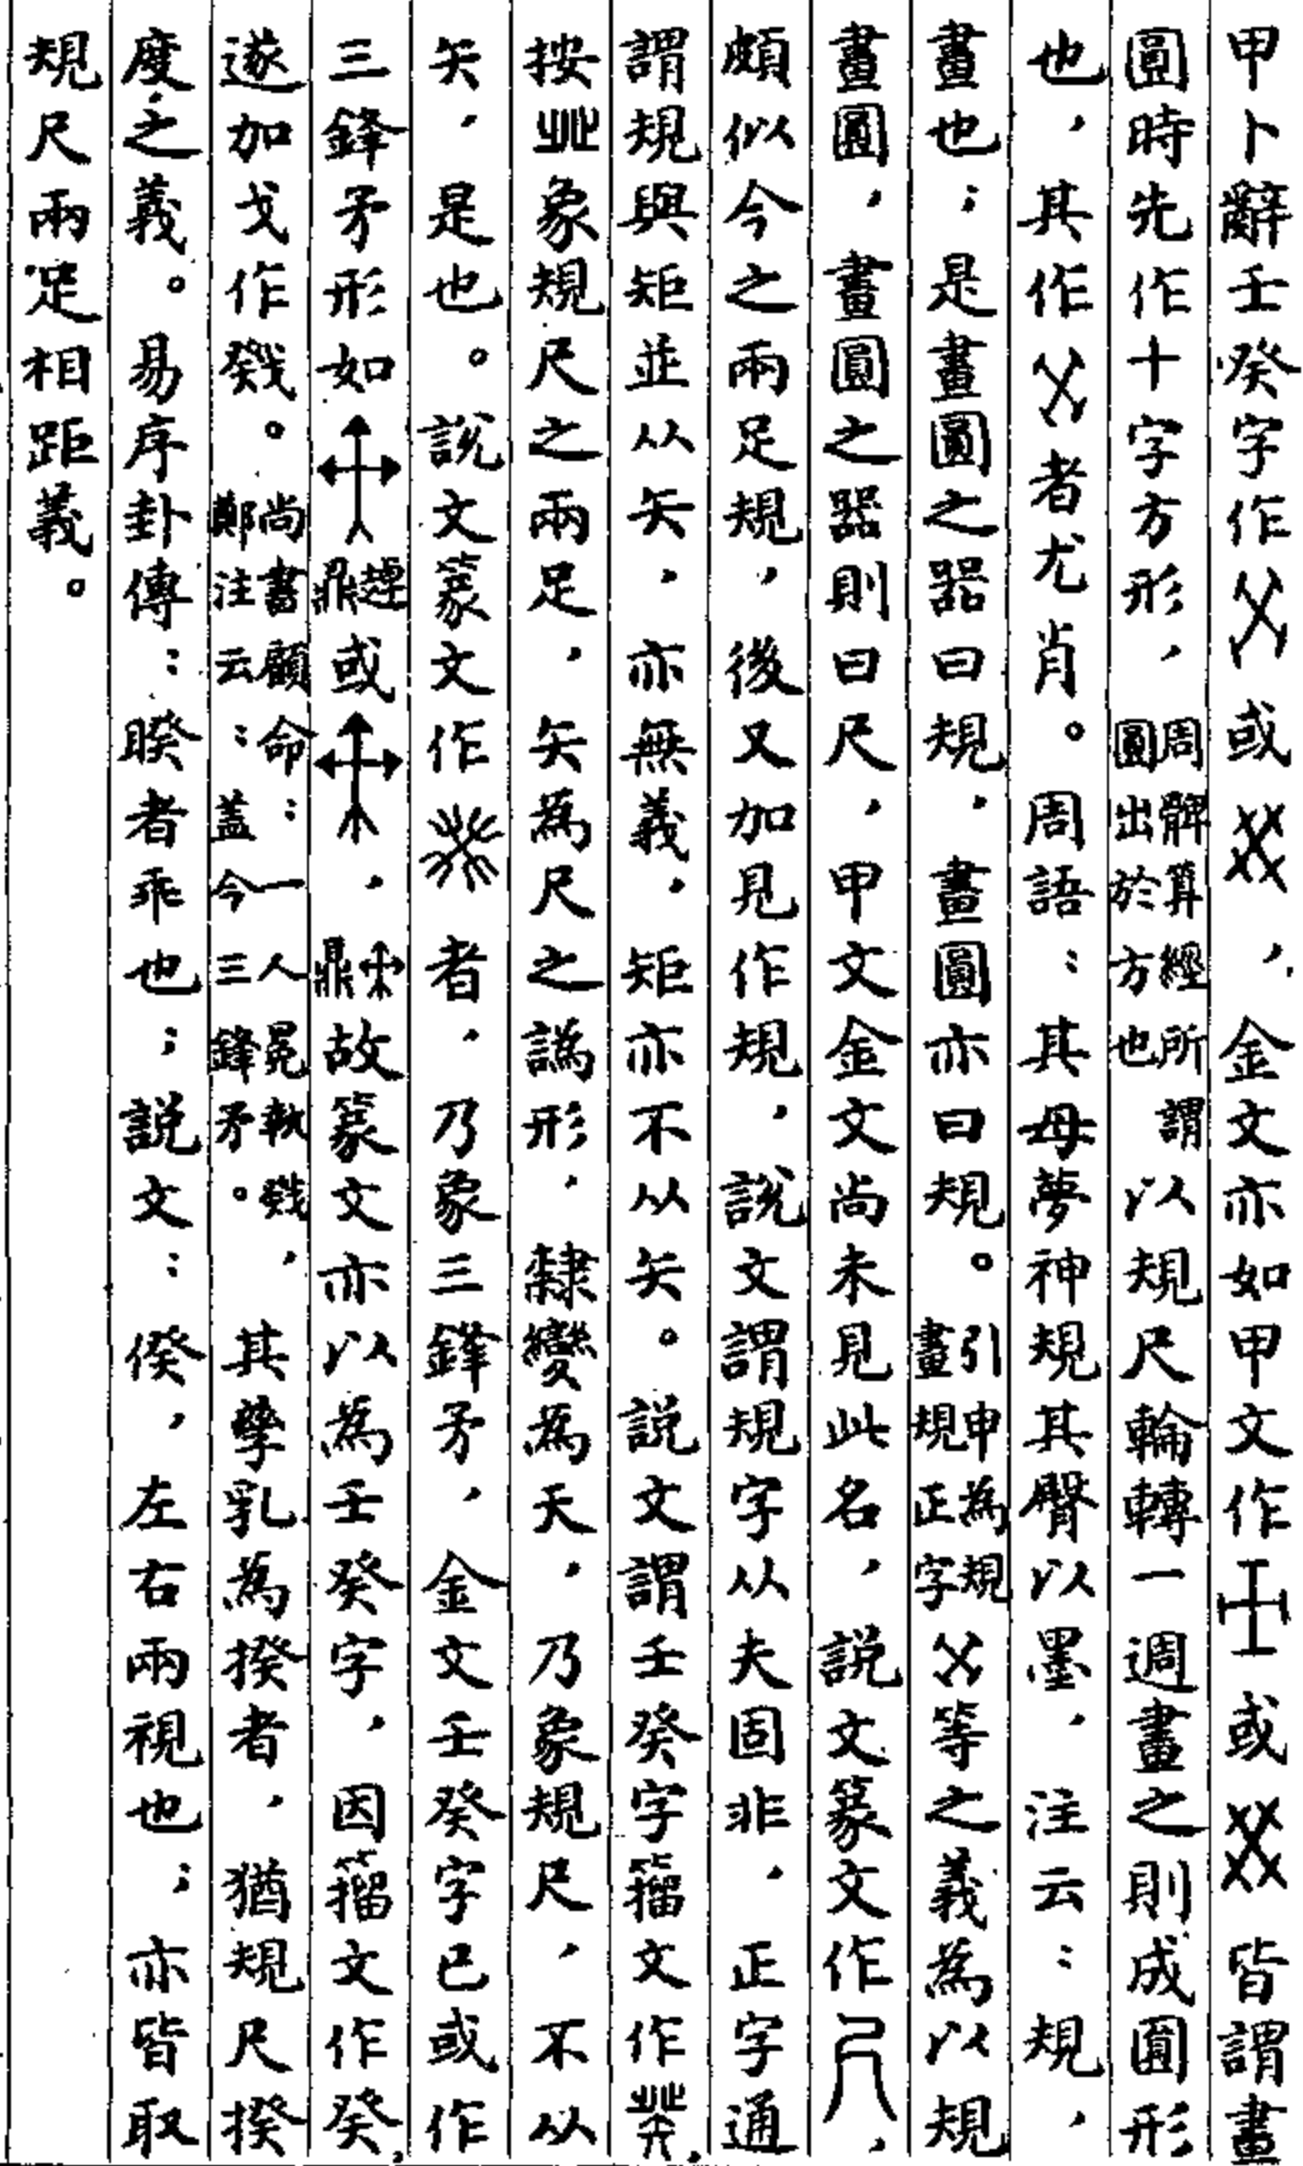 甲卜辭壬癸字作或，金文亦如甲文作或皆謂畫
圓時先作十字方形，周髀算經所謂圓出於方也以規尺輪轉一週畫之則成圓形
也，其作者尤肖。周語：其母夢神規其臀以墨，注云：規，
畫也；是畫圓之器曰規，畫圓亦曰規。引申為規畫規正字等之義為以規
畫圓，畫圓之器則曰尺，甲文金文尚未見此名，說文篆文作，
頗似今之兩足規，後又加見作規，說文謂規字从夫固非，正字通
謂規與矩並从矢，亦無義，矩亦不从矢。說文謂壬癸字籀文作，
按象規尺之兩足，矢為尺之譌形，隸變為天，乃象規尺，不从
矢，是也。說文篆文作者，乃象三鋒矛，金文壬癸字已或作
三鋒矛形如鼎或，鼎故篆文亦以為壬癸字，因籀文作癸，
遂加戈作戣。尚書顧命：一人冕執戣，鄭注云：蓋今三鋒矛。其孳乳為揆者，猶規尺揆
度之義。易序卦傳：睽者乖也；說文：傒，左右兩視也；亦皆取
規尺兩足相距義。